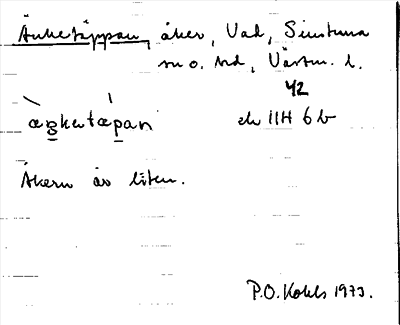 Änketäppan, åker, Vad, Simtuna
sn o. hd, Västm. l.
42
æŋketæpan ek 11H 6b
Åkern är liten.
P.O. Kohls 1973.